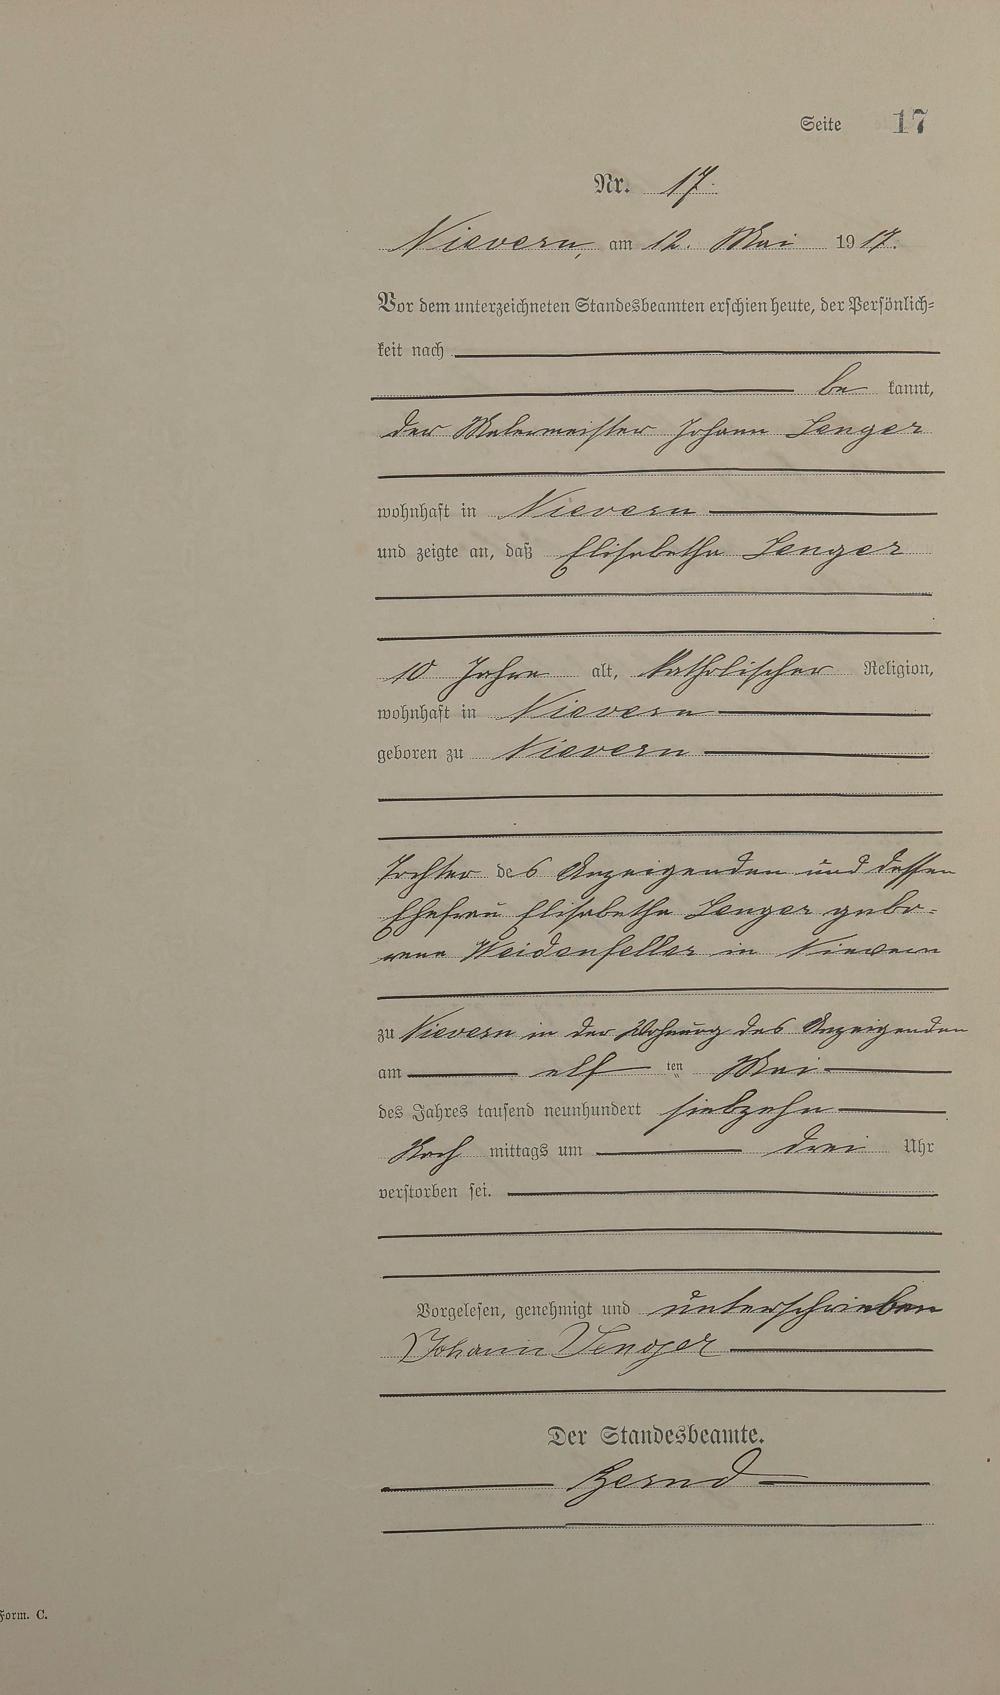 Seite 17
Nr. 17.
Nievern, am 12. Mai 1917.
Vor dem unterzeichneten Standesbeamten erschien heute, der Persönlich=
keit nach
be kannt,
der Malermeister Johann Senger
wohnhaft in Nievern
und zeigte an, daß Elisabetha Senger
10 Jahre alt, katholischer Religion,
wohnhaft in Nievern
geboren zu Nievern
Tochter des Anzeigenden und dessen
Ehefrau Elisabetha Senger gebo=
rene Weidenfeller in Nievern
zu Nievern in der Wohnung des Anzeigenden
am elf ten Mai
des Jahres tausend neunhundert siebzehn
Nach mittags um drei Uhr
verstorben sei.
Vorgelesen, genehmigt und unterschrieben
Johann Senger
Der Standesbeamte.
Form. C.